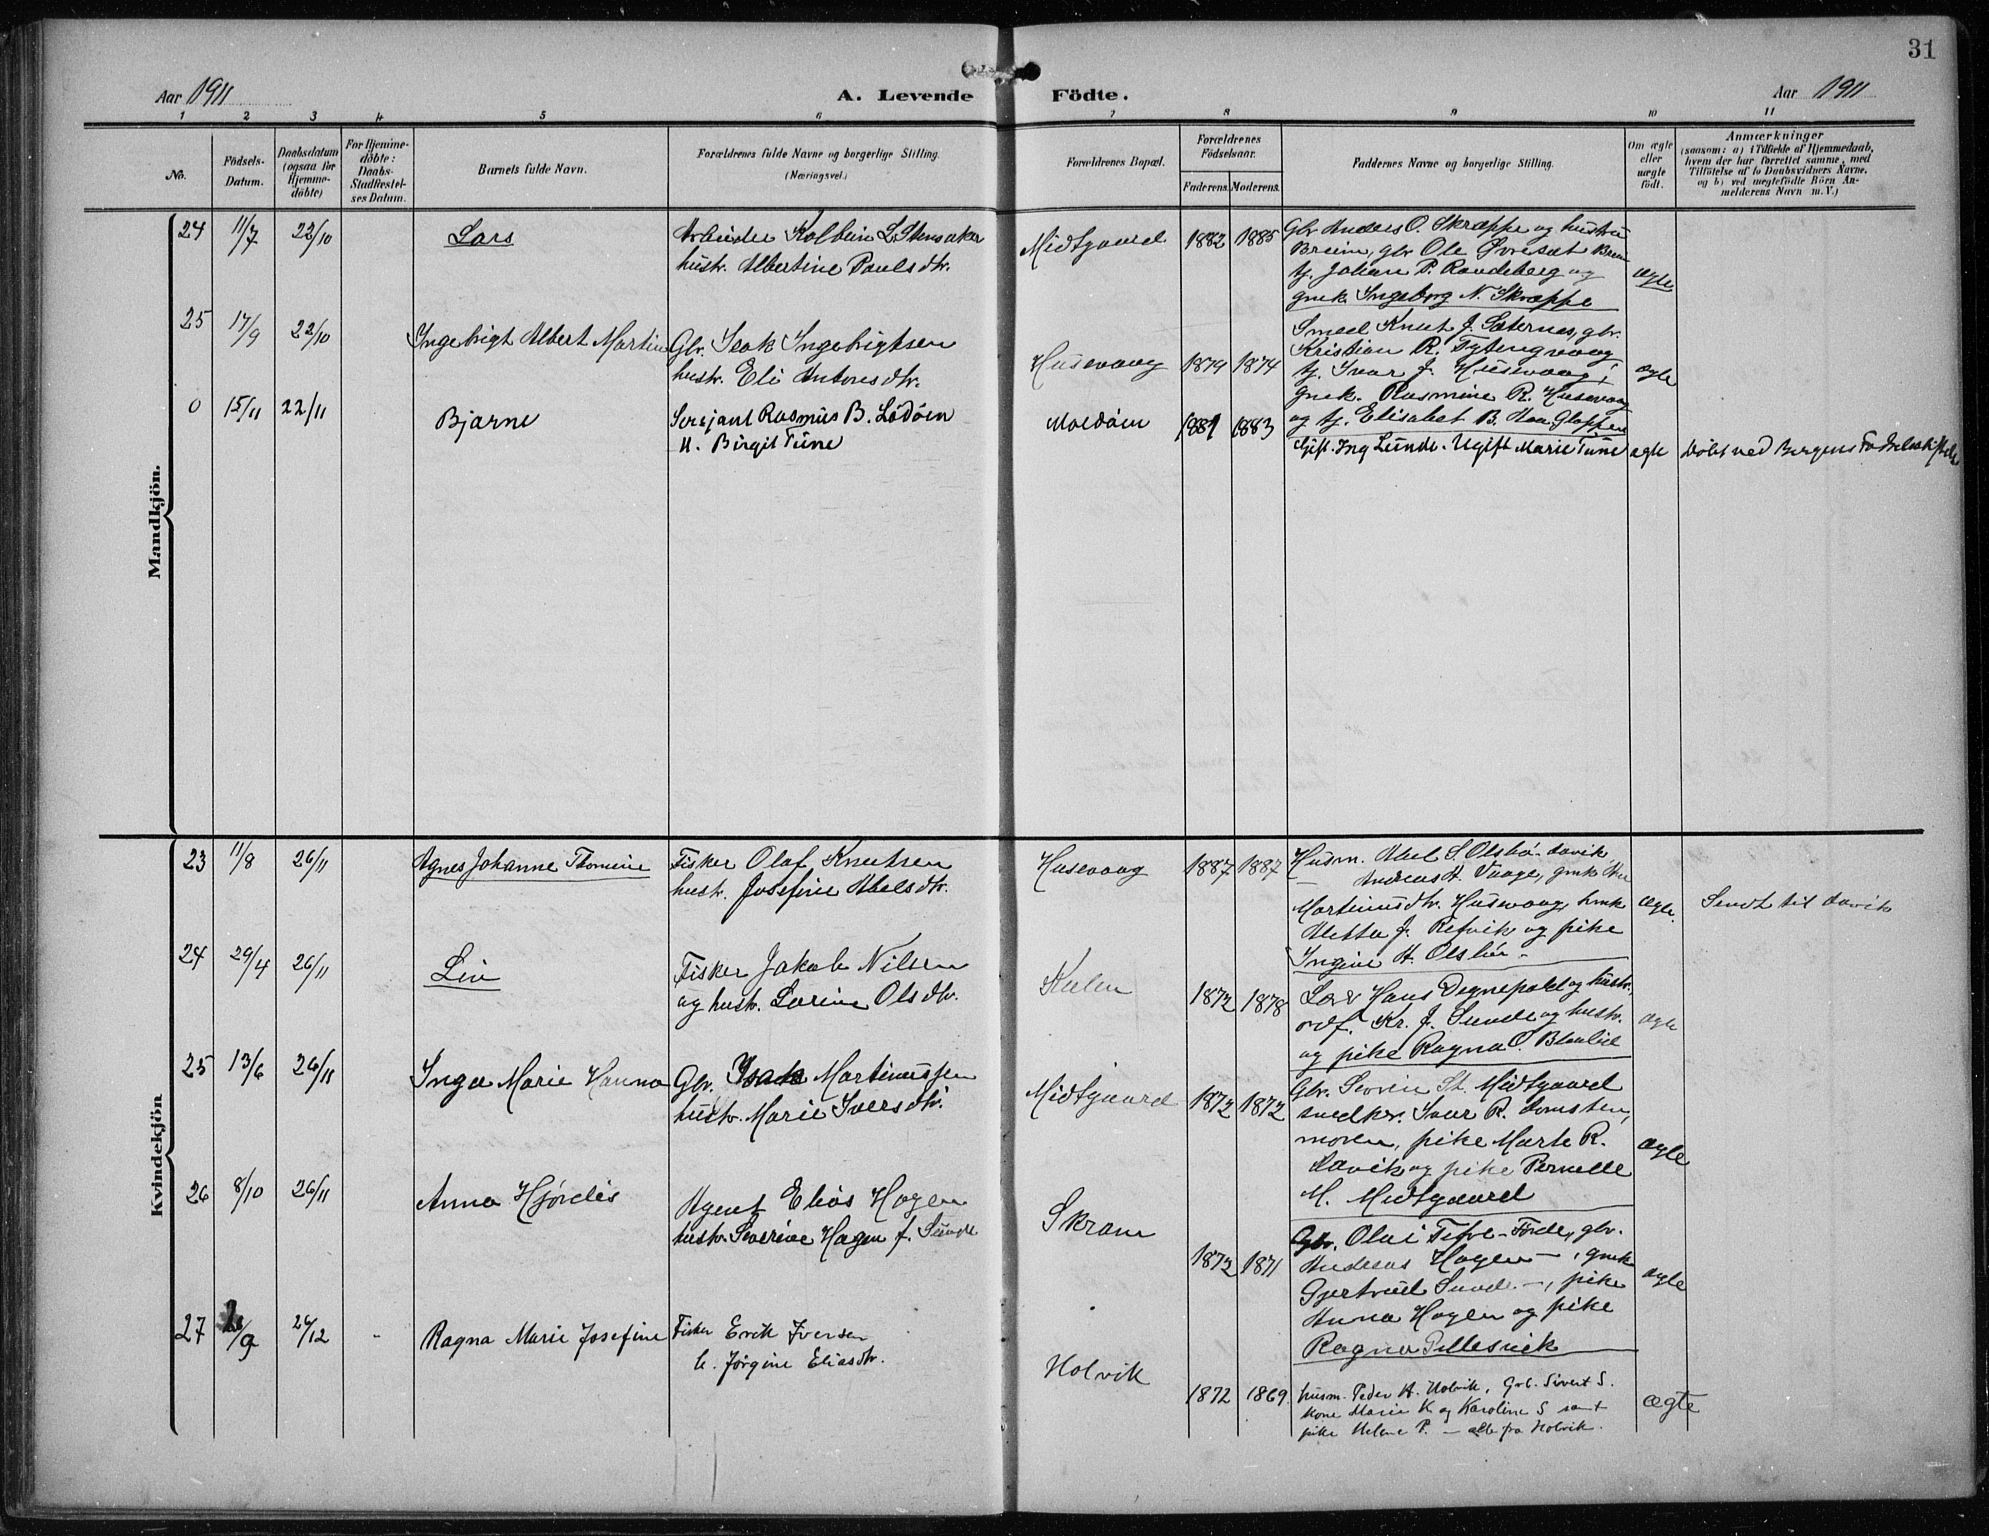 31
Aar 1911
A. Levende Födte.
Aar 1911
1 2 3 4 5 6 7 8 9 10 11
No.
Födsels-
Datum.
Daabsdatum
(ogsaa for
Hjemme-
döbte)
For Hjemme-
döbte:
Daabs-
Stadfæstel-
ses Datum.
Barnets fulde Navn.
Forældrenes fulde Navne og borgerlige Stilling.
(Næringsvei.)
Forældrenes Bopæl.
Forældrenes
Födselsaar.
Faderens. Moderens.
Faddernes Navne og borgerlige Stilling.
Om ægte
eller
uægte
födt.
Anmærkninger
(saasom: a) i Tilfælde af Hjemmedaab,
hvem der har forrettet samme, med
Tilföielse af to Daabsvidners Navne,
og b) ved uægtefödte Börn An-
melderens Navn m. V.)
Mandkjön.
24 11/7 22/10 Lars
Arbeider Kolbein L. Stensaker
hustr. Albertine Paulsdtr.
Midtgaard 1882 1885
Glv Anders O. Skrappe og hustru
Breim, glv Ole Øvreset Breim
tj. Johan P. Raudeberg og
gmk. Ingeborg N. Skrappe
ægte
25 17/9 22/10 Ingebrigt Albert Martin
Glv. Isak Ingebrigtsen
hustr. Eli Antonsdtr.
Husevaag 1879 1874
Smed Knut J. Sæternes, gbr.
Kristian R. Tytingvaag,
tj. Ivar J. Husevaag,
gmk. Rasmine R. Husevaag
og tj. Elisabet B. Gloppen
ægte
0 15/11 22/11 Bjarne
Sersjant Rasmus B. Lødøen
H. Birgit Tune
Moldøen 1881 1883
Gift. Ing Lunde. Ugift Marie Tune
ægte
Døbt ved Bergens Fødselsstiftelse
Kvindekjön
23 11/8 26/11 Agnes Johanne Thomine
Fisker Olaf Knutsen
hustr. Josefine Abelsdtr.
Husevaag 1887 1887
Husm. Abel S. Olsbø - Davik
Andreas A. Vaage, gmk
Martinusdtr. Husevaag, hmk
Aletta J. Refvik og pike
Ingine A. Olsbø -
ægte.
Sendt til Davik
24 29/4 26/11 Liv
Fisker Jakob Nilsen
og hustr. Larine Olsdtr.
Kulen 1872 1878
Hans Degnepoll og hustr.,
ordf. Kr. J. Sunde og hustr.
og pike Ragna O. Blaalid
ægte
25 13/6 26/11 Inga Marie Hanna
Glv. Isak Martinussen
hustr. Marie Iversdtr.
Midtgaard 1872 1872
Gbr. Severin St. Midtgaard
snedker. Ivar R. Domsten,
moren, pike Marte R.
Davik og pike Pernelle
M. Midtgaard
ægte
26 8/10 26/11 Anna Hjørdis
Agent Elias Hagen
hustr. Severine Hagen f. Sunde
Skram 1872 1871
Gbr. Olai Tefre - Förde, gbr.
Andreas Hagen - , gmk
Gjertrud Sunde -, pike
Anna Hagen og pike
Ragna Pillesvik
ægte
27 /9 26/12 - Ragna Marie Josefine
Fisker Erik Iversen
h. Jørgine Eliasdtr.
Holvik 1872 1869
husm. Peder A. Holvik, Grb. Sivert S.
kone Marie K. og Karoline S samt
pike Helene P. - alle fra Holvik.
ægte